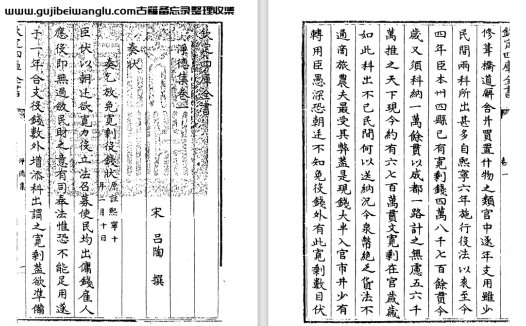 www.gujibeiwanglu.com古籍备忘录整理收集
欽定四庫全書
淨德集卷一
宋 呂陶 撰
奏狀
奏乞放免寬剩役錢狀 原註熙寧十
年二月十日
臣伏以朝廷欲寬力役立法召募使民均出傭錢雇人
應役即無過斂民財之意有司奉法惟恐不能足用遂
于一年合支役錢數外增添科出謂之寬剩蓋欲準備
欽定四庫全書
淨德集
欽定四庫全書
卷一
修葺橋道廨舍并買置什物之類官中逐年支用雖少
民間兩科所出甚多自熙寧六年施行役法以來至今
四年臣本州四縣已有寬剩錢四萬八千七百餘貫今
歲又須科納一萬餘貫以成都一路計之無慮五六千
萬推之天下現今約有六七百萬貫文寬剩在官歲歲
如此科出不已民間何以送納況今泉幣絶乏貨法不
通商旅農夫最受其弊蓋是現錢大半入官市井少有
轉用臣愚深恐朝廷不知免役錢外有此寬剩數目伏